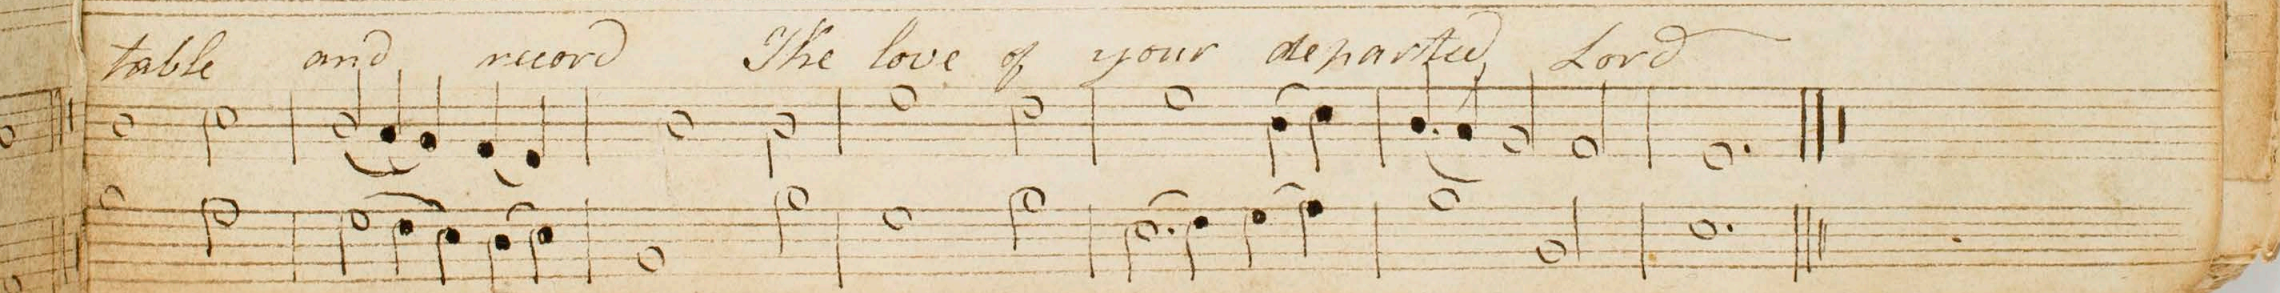 table and record The love of your departed Lord